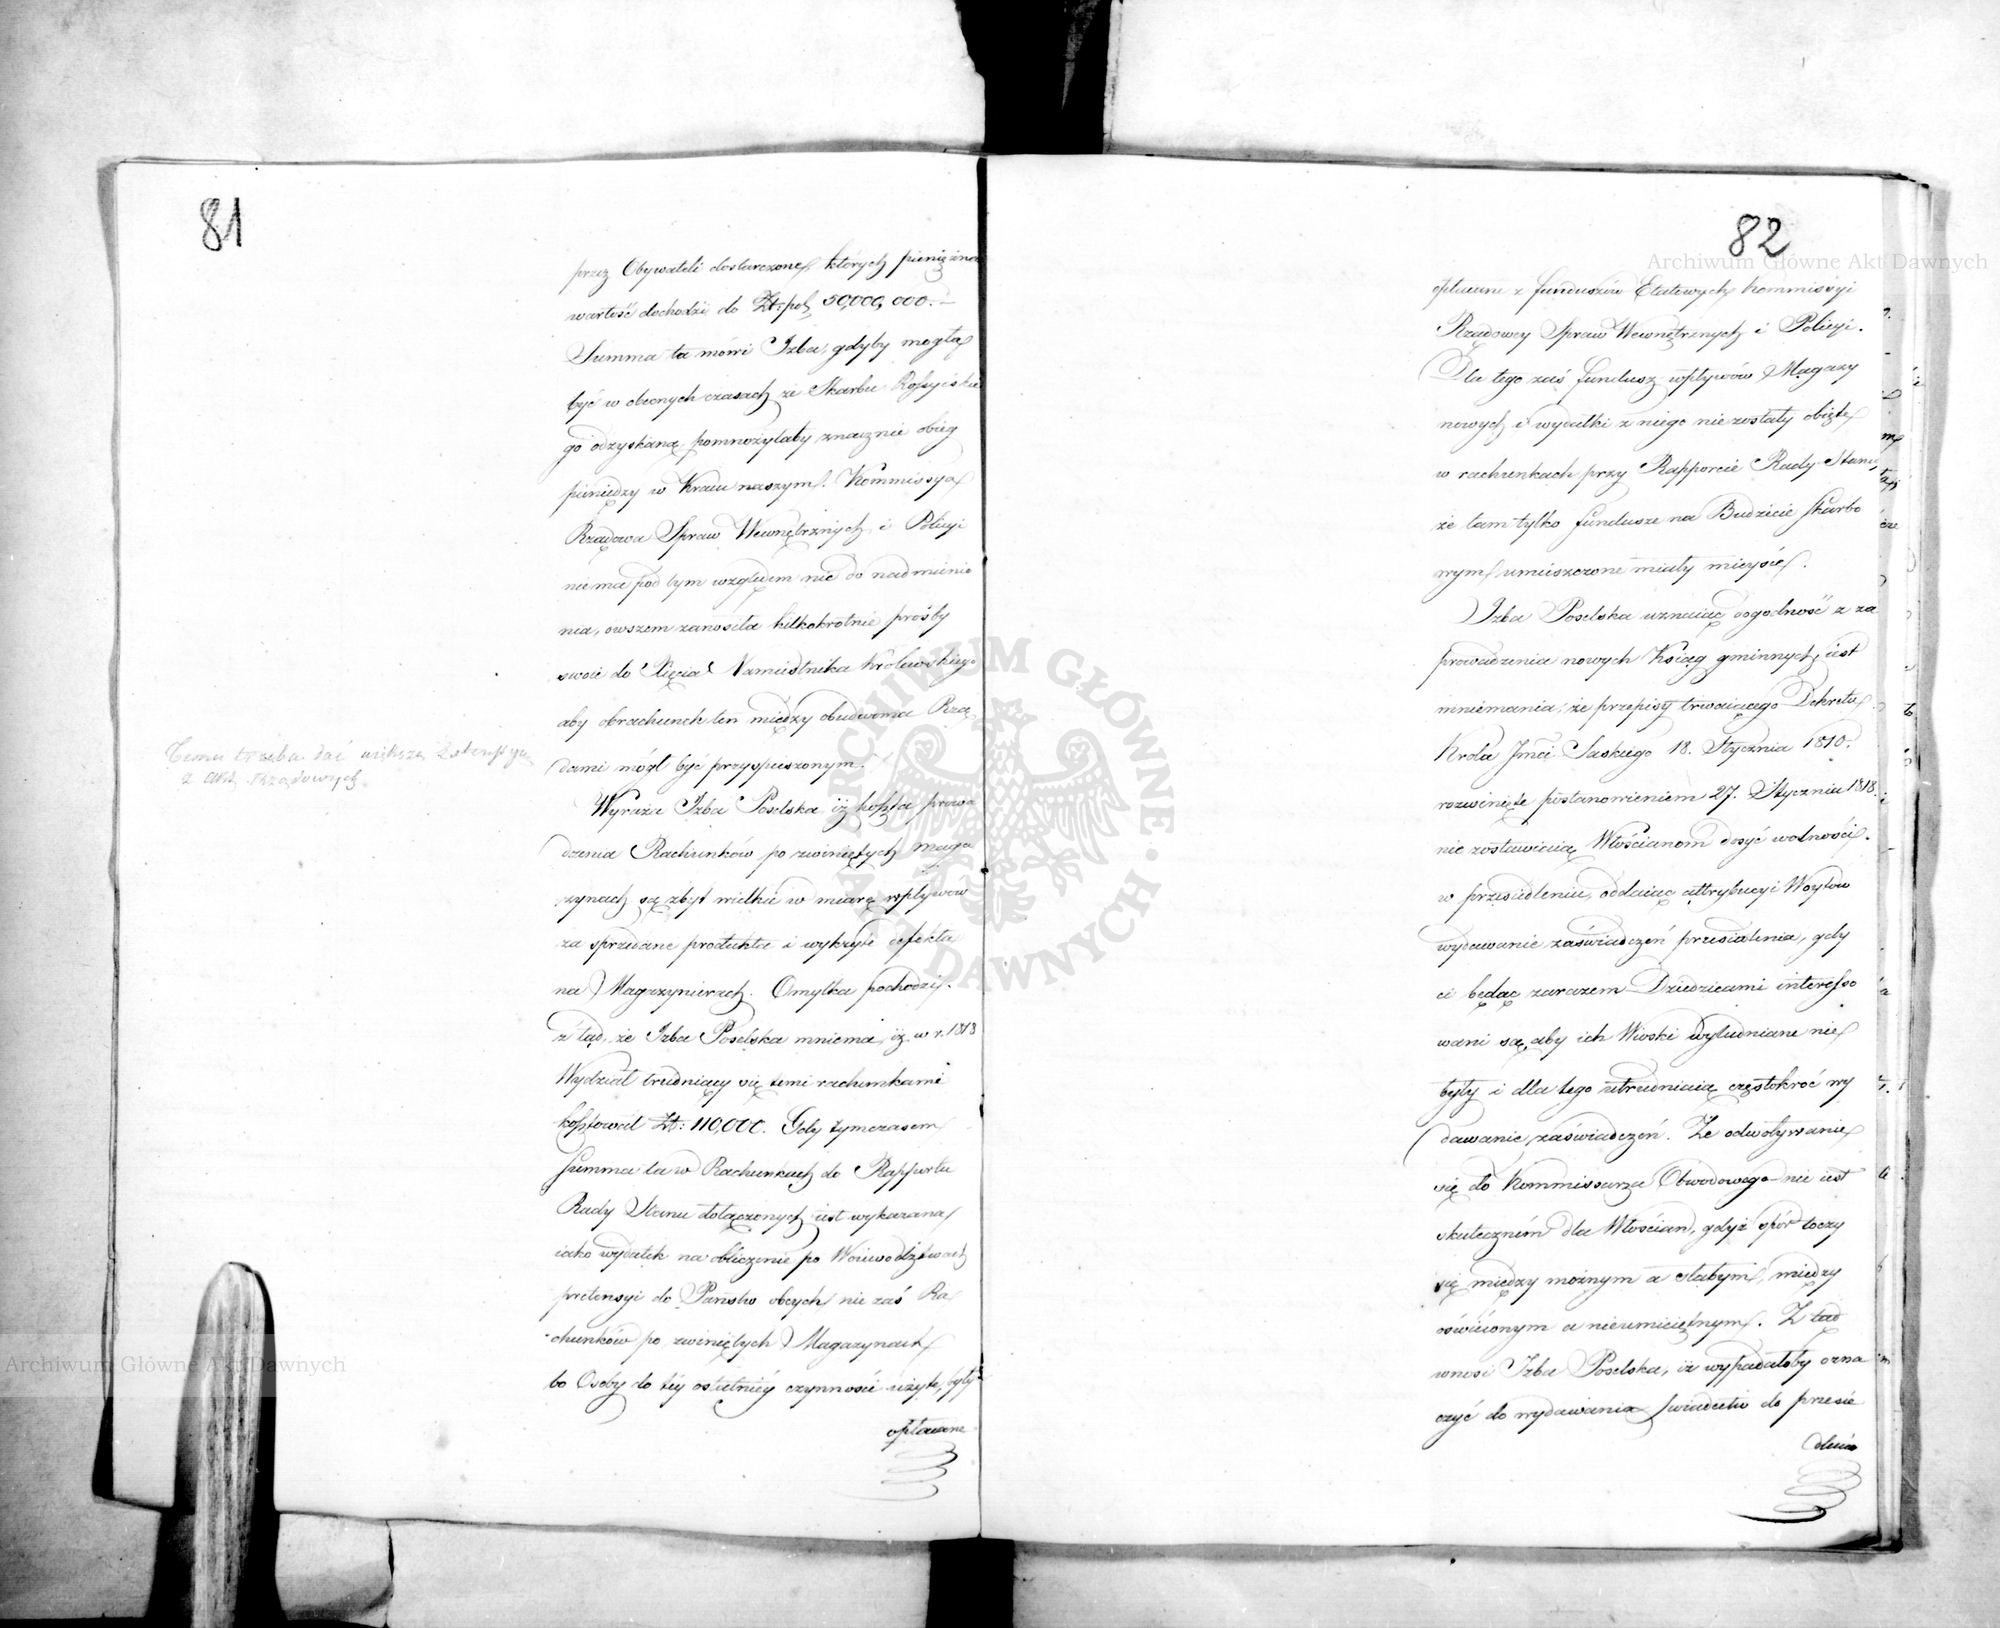 81
przez Obywateli dostarczone, których pieniężna
wartość dochodzi do Zł: pol, 50,000,000. —
Summa ta mówi Izba, gdyby mogła
być w obecnych czasach ze Skarbu Rossyiskie
go odzyskaną, pomnożyłaby znacznie obieg
pieniędzy w Kraiu naszym. Kommissya
Rządowa Spraw Wewnętrznych i Policyi
nie ma pod tym względem nic do nadmienie
nia, owszem zanosiła kilkokrotnie prośby
swoie do Xięcia Namiestnika Królewskiego
aby obrachunek ten między obudwoma Rzą
dami mógł być przyspieszonym.
Temu trzeba dać większą
z akt Rządowych.
Wyraża Izba Poselska iż koszta prowa
dzenia Rachunków po zwiniętych Maga
zynach są zbyt wielkie w miarę wpływów
za sprzedane produkta i wykryte defekta
na Magazynierach. Omyłka pochodzi
z tąd, że Izba Poselska mniema, iż w r. 1818
Wydział trudniący się temi rachunkami
kosztował Zł: 110,000. Gdy tymczasem
summa ta w Rachunkach do Rapportu
Rady Stanu dołączonych iest wykazana
iako wydatek na obliczenie po Woiewodztwach
pretensyi do Państw obcych nie zaś Ra
chunków po zwiniętych Magazynach
bo Osoby do téy ostatniéy czynności użyte, były
opłacane
82
opłacane z funduszów Etatowych Kommissyi
Rządowey Spraw Wewnętrznych i Policyi.
Dla tego zaś fundusz wpływów Magazy
nowych i wydatki z niego nie zostały obięte
w rachunkach przy Rapporcie Rady Stanu,
że tam tylko fundusze na Budżecie Skarbo
wym umieszczone miały mieysce.
Izba Poselska uznaiąc dogodność z za
prowadzenia nowych Ksiąg gminnych, iest
mniemania, że przepisy trwaiącego Dekretu
Króla Jmci Saskiego 18. Stycznia 1810.
rozwinięte postanowieniem 27. Stycznia 1818.
nie zostawiaią Włościanom dosyć wolności
w przesiedleniu, oddaiąc attrybucyi Woytów
wydawanie zaświadczeń przesiedlenia, gdy
ci będąc zarazem Dziedzicami interesso
wani są, aby ich Wioski wyludniane nie
były i dla tego utrudniaią częstokroć wy
dawanie zaświadczeń. Że odwoływanie
się do Kommissarza Obwodowego nie iest
skuteczném dla Włościan, gdyż spór toczy
się między możnym a słabym, między
oświeconym a nieumieiętnym. Z tąd
wnosi Izba Poselska, iż wypadałoby ozna
czyć do wydawania świadectw do przesie
dlenia